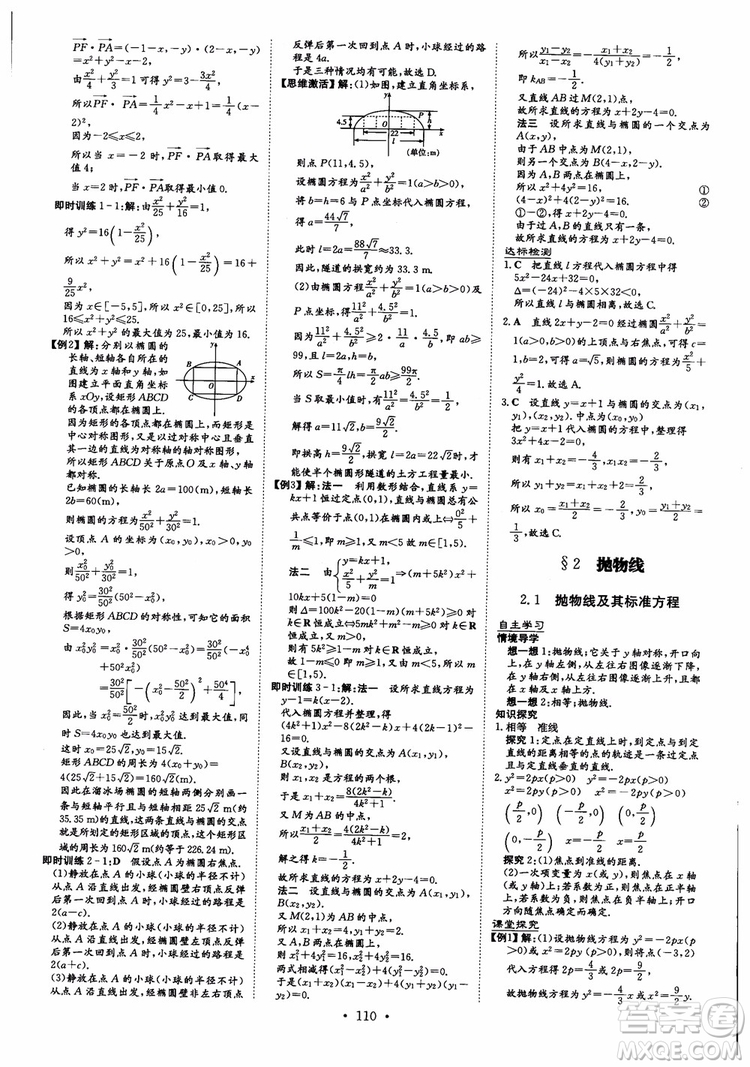 PF·PA=(-1-x,-y)·(2-x,-y)
=x²+y²-x-2=x²-x-2+3-3x²/4
所以PF·PA=1/4x²-x+1=1/4(x-
2)².
因为-2≤x≤2,
当x=-2时,PF·PA取得最大
值4;
当x=2时,PF·PA取得最小值0.
即时训练1-1:解:由x²/25+y²/16=1,
得y²=16(1-x²/25),
所以x²+y²=x²+16(1-x²/25)=16+
9/25x².
因为x∈[-5,5],所以x²∈[0,25],
所以16≤x²+y²≤25,
所以x²+y²的最大值为25,最小值为16.
【例2】解:分别以椭圆的
长轴、短轴各所在的
直线为x轴和y轴,如
图建立平面直角坐标系
xOy,设矩形ABCD
的各顶点都在椭圆上.
因为矩形的各顶点都在椭圆上,而矩形是
中心对称图形,又是以过对称中心且垂直
其一边的直线为对称轴的轴对称图形,
所以矩形ABCD关于原点O及x轴,y轴
都对称.
已知椭圆的长轴长2a=100(m),短轴长
2b=60(m),
则椭圆的方程为x²/50²+y²/30²=1.
设顶点A的坐标为(x₀,y₀),x₀>0,y₀>0,
则x₀²/50²+y₀²/30²=1,
得y₀²=30²/50²(50²-x₀²).
根据矩形ABCD的对称性,可知它的面积
S=4x₀y₀.
由x₀²y₀²=x₀²·30²/50²(50²-x₀²)=30²/50²(-x₀⁴
+50²x₀²)
=30²/50²[-(x₀²-50²/2)²+50⁴/4]
因此当x₀²=50²/2时,x₀²y₀²达到最大值,同时
S=4x₀y₀也达到最大值,
这时x₀=25√2,y₀=15√2.
矩形ABCD的周长为
4(25√2+15√2)=160√2(m).
因此在溜冰场椭圆的短轴两侧分别画一
条与短轴平行且与短轴相距25√2 m(约
35.35 m)的直线,这两条直线与椭圆的交
点就是所划矩形区域的顶点,这个矩形区
域的周长为160√2 m(约226.24 m).
即时训练2-1:D 假设点A为椭圆右焦点.
(1)静放在点A的小球(小球的半径不计)
从点A沿直线出发,经椭圆壁右顶点反弹
后第一次回到点A时,小球经过的路程是
2(a-c).
(2)静放在点A的小球(小球的半径不计)
从点A沿直线出发,经椭圆壁左顶点反弹
后第一次回到点A时,小球经过的路程是
2(a+c).
(3)静放在点A的小球(小球的半径不计)
从点A沿直线出发,经椭圆壁非左右顶点
反弹后第一次回到点A时,小球经过的路
程是4a.
于是三种情况均有可能,故选D.
【思维激活】解:(1)如图,建立直角坐标系,
y
P
4.5
h
O
22
x
l
(单位:m)
则点P(11,4.5),
设椭圆方程为x²/a²+y²/b²=1(a>b>0).
将b=h=6与P点坐标代入椭圆方程,
得a=44√7/7,
此时l=2a=88√7/7≈33.3.
因此,隧道的拱宽约为33.3 m.
(2)由椭圆方程x²/a²+y²/b²=1(a>b>0)及
P点坐标,得11²/a²+4.5²/b²=1.
因为11²/a²+4.5²/b²≥2×11×4.5/ab,即ab≥
99,且l=2a,h=b,
所以S=π/4lh=πab/2≥99π/2.
当S取最小值时,有11²/a²=4.5²/b²=1/2,
解得a=11√2,b=9√2/2.
即拱高h=9√2/2 m、拱宽l=22√2 m时,才
能使半个椭圆形隧道的土方工程量最小.
【例3】解:法一 利用数形结合,直线y=kx
+1恒过定点(0,1),若直线与椭圆总有公
共点,则点(0,1)在椭圆上或椭圆内,0²/5+
1/m≤1,即m≥1,又m<5所以m∈[1,5).
法二 由{y=kx+1, x²/5+y²/m=1,得(m+5k²)x²+10kx+
5(1-m)=0对k∈R恒成立,
则Δ=100k²-20(1-m)(m+5k²)≥0,
即5mk²+m-m²≤0对k∈R恒成立,
由于m>0,
所以有5k²≥1-m对k∈R恒成立,
所以1-m≤0,即m≥1,又0<m<5,
所以m∈[1,5).
即时训练3-1:解:法一 设所求直线方程为
y-1=k(x-2).
代入椭圆方程并整理,得
(4k²+1)x²-8(2k²-k)x+4(2k-1)²-
16=0.
又设直线与椭圆的交点为A(x₁,y₁),
B(x₂,y₂),则x₁,x₂是方程的两个根,
于是x₁+x₂=8(2k²-k)/4k²+1.
又M为AB的中点,
所以x₁+x₂/2=4(2k²-k)/4k²+1=2,
解之得k=-1/2.
故所求直线方程为x+2y-4=0.
法二 设直线与椭圆的交点为A(x₁,y₁),
B(x₂,y₂),
又M(2,1)为AB的中点,
所以x₁+x₂=4,y₁+y₂=2.
又A、B两点在椭圆上,则x₁²+4y₁²=16,
x₂²+4y₂²=16.
两式相减得(x₁²-x₂²)+4(y₁²-y₂²)=0.
于是(x₁+x₂)(x₁-x₂)+4(y₁+y₂)(y₁-
y₂)=0.
所以y₁-y₂/x₁-x₂=-x₁+x₂/4(y₁+y₂)=-1/2,
即kAB=-1/2.
又直线l过M(2,1)点,
故所求直线的方程为x+2y-4=0.
法三 设所求直线与椭圆的一个交点为
A(x,y),
由于AB中点为M(2,1),
则另一个交点为B(4-x,2-y).
因为A、B两点在椭圆上,
所以x²+4y²=16, ①
(4-x)²+4(2-y)²=16. ②
①-②得x+2y-4=0.
由于过A、B的直线只有一条,
故所求直线的方程为x+2y-4=0.
达标检测
1.C 把直线l方程代入椭圆方程中得
5x²-4x-32=0.
Δ=(-4)²-4×5×(-32)>0.
故选C.
2.A 直线x-2y+2=0过点(-2,0),(0,
1),故为椭圆的上顶点与左焦点,故c=
2,b=1,可得a=√5,所以椭圆的方程为x²/5
+y²=1,故选A.
3.C 设直线y=x+1与椭圆的交点为(x₁,
y₁),(x₂,y₂),中点为(x₀,y₀),
把y=x+1代入椭圆方程,得3x²+4x-
2=0.
则有x₁+x₂=-4/3,x₁x₂=-2/3,
所以x₀=x₁+x₂/2=-2/3,y₀=x₀+1=
1/3,故选C.
§2 抛物线
2.1 抛物线及其标准方程
自主学习
情境导学
想一想1:抛物线;它关于y轴对称,开口向
上,在y轴左侧,从左往右图像下降,
在y轴右侧,从左往右图像上升.
想一想2:相等;抛物线.
知识探究
1.相等 准线
探究1:定点在定直线上时,动点的轨迹是
过定点且与定直线垂直的直线.
2.y²=2px(p>0) y²=-2px(p>0)
x²=2py(p>0) x²=-2py(p>0)
(p/2,0) (-p/2,0) (0,p/2)
(0,-p/2)
探究2:(1)焦点到准线的距离.
(2)一次项变量为x(或y),则焦点在x
轴(或y轴)上;若系数为正,则焦点在正半
轴上;系数为负,则焦点在负半轴上.开口
方向由焦点位置确定而确定.
课堂探究
【例1】解:(1)设抛物线方程为y²=-2px或
x²=2py(p>0),则将点(-3,2)
代入方程得2p=4/3或2p=9/2,
故抛物线方程为y²=-4/3x或x²=9/2y.
110
答案圈